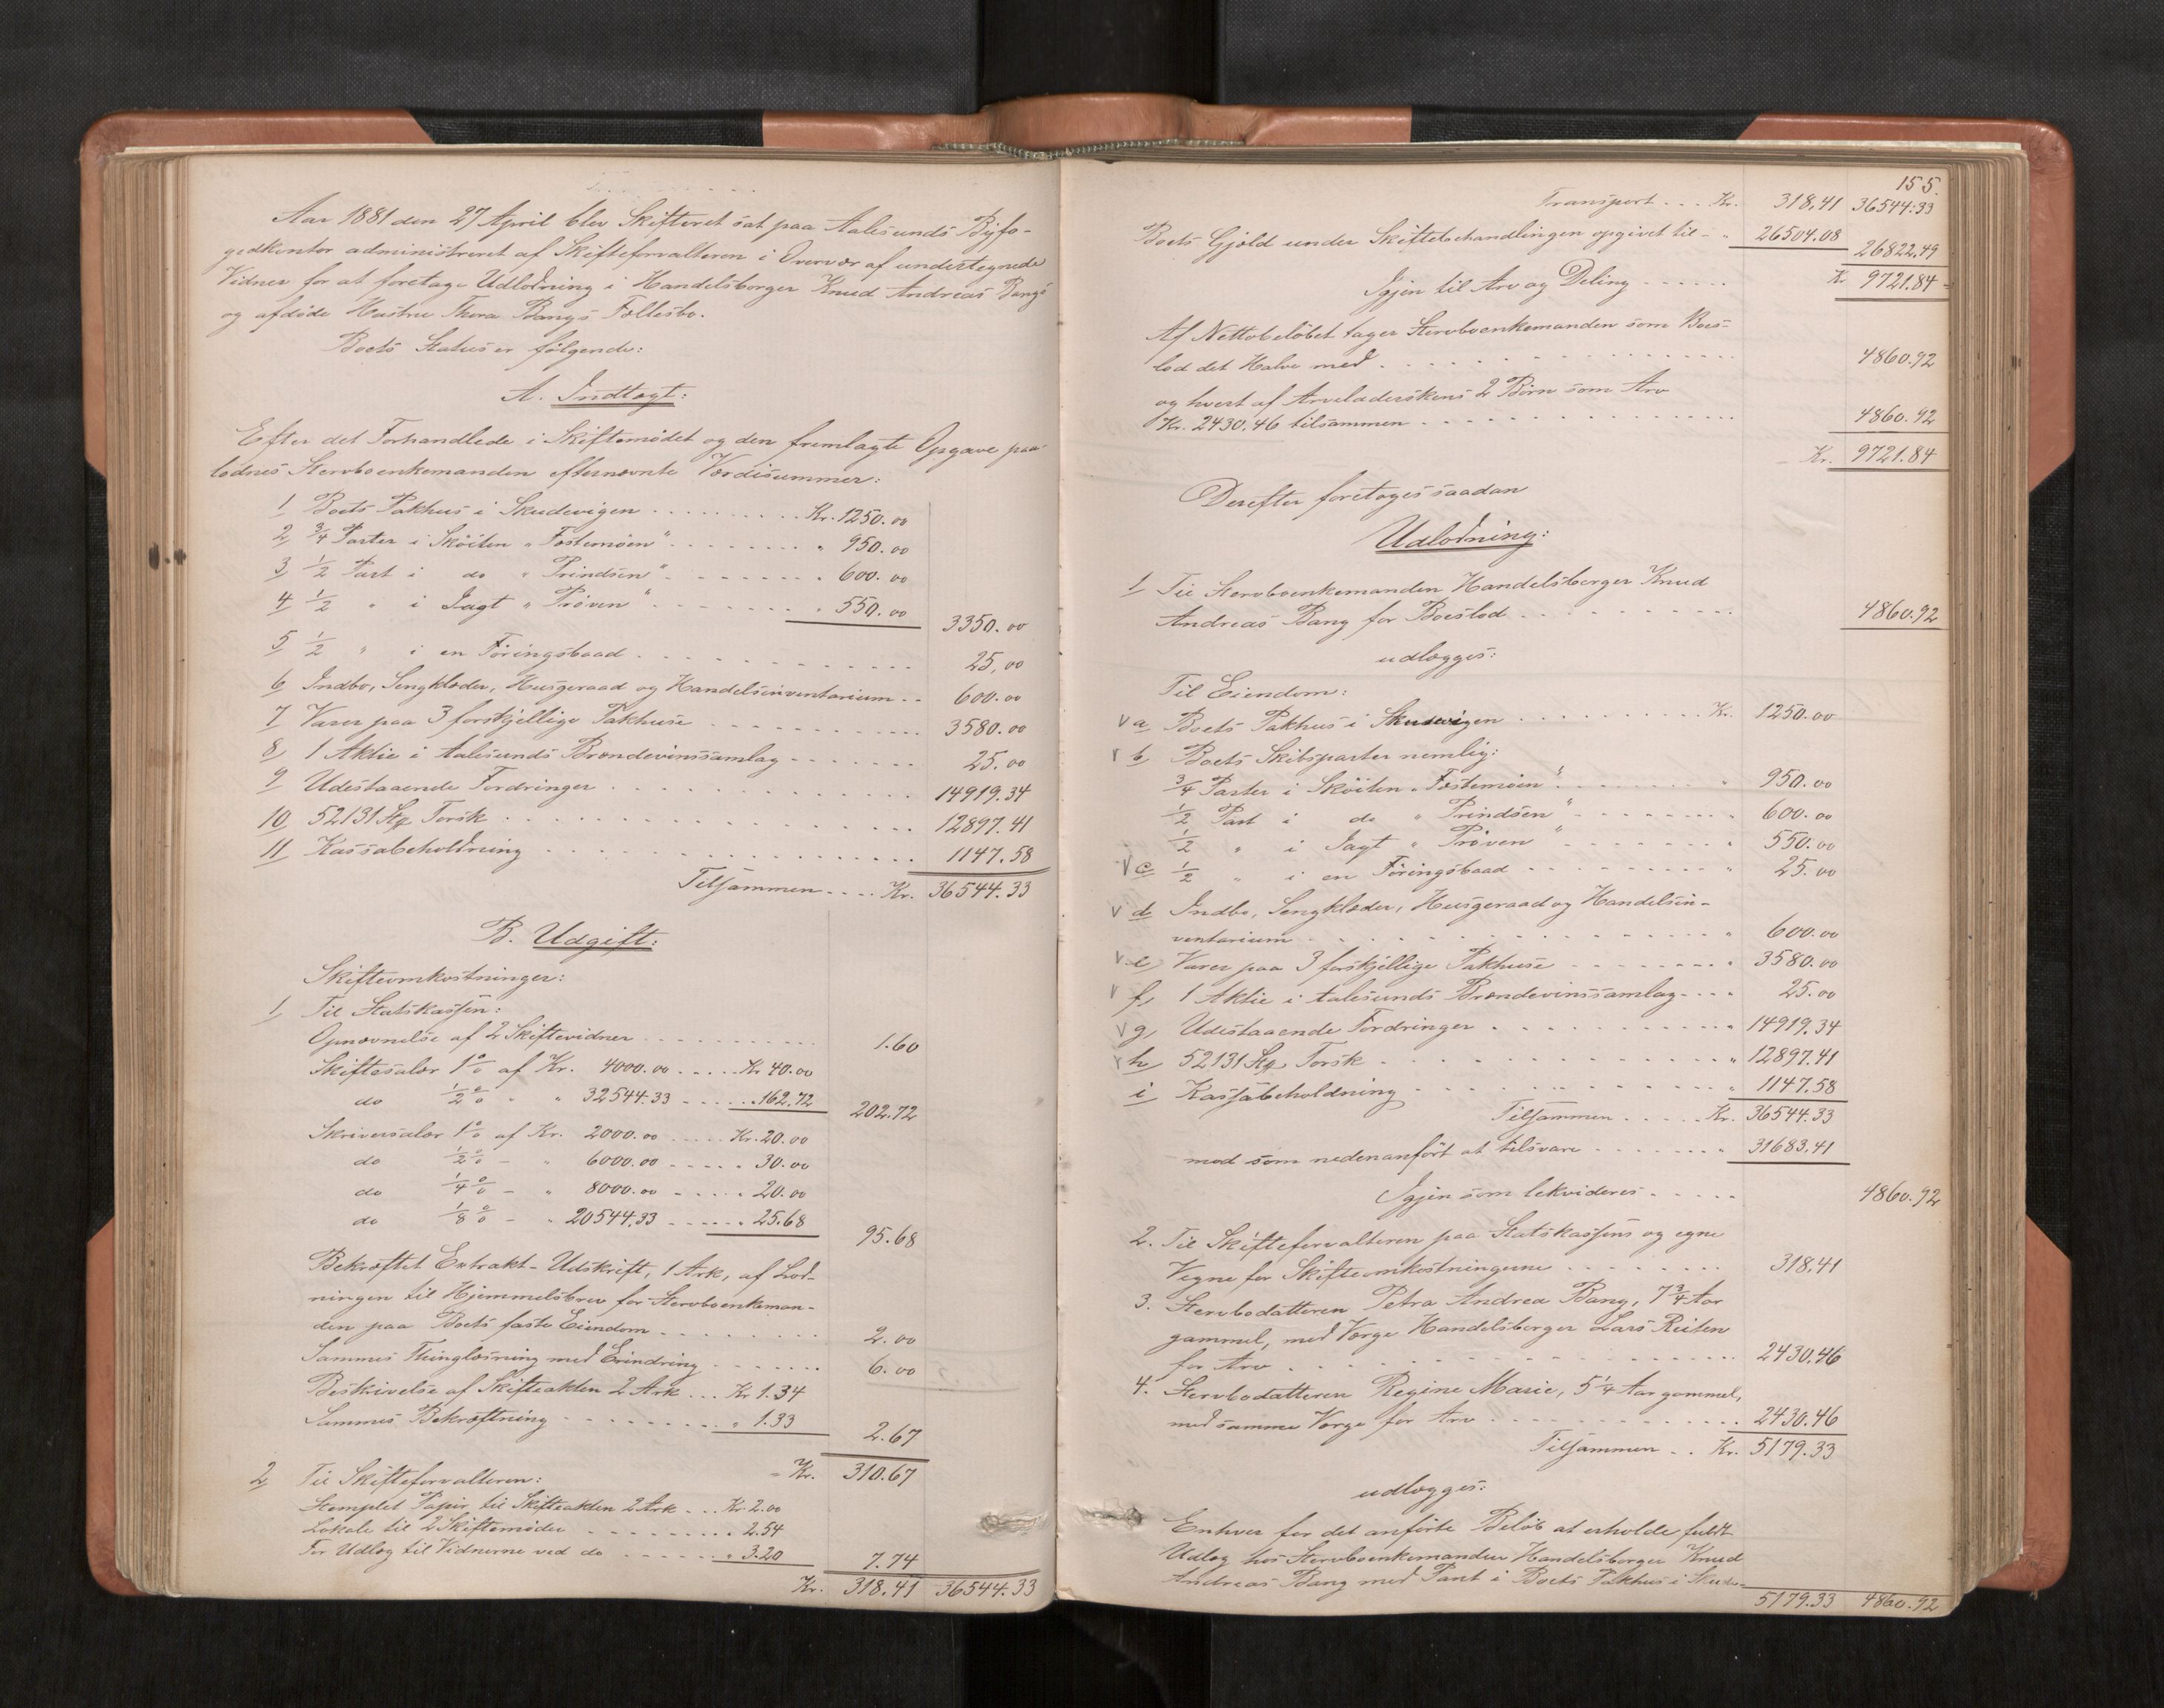 Aar 1881 den 27 April blev Skifteret sat paa Aalesunds Byfo-
gedkontor administreret af Skifteforvalteren i Overvær af undertegnede
Vidner for at foretage Udlodning i Handelsborger Knud Andreas Bangs
og afdöde Hustru Thora Bangs Fællesbo.
Boets Status er følgende:
A. Indtægt:
Efter det Forhandlede i Skiftemödet og den fremlagte Opgave paa-
lodnes Stervboenkemanden efternævnte Værdisummer:
1 Boets Pakhus i Skudevigen . . . Kr. 1250.00
2 3/4 Parter i Sköiten „Fæstemöen“ . . . „ 950.00
3 1/2 Part i do „Prindsen“ . . . „ 600.00
4 1/2 „ i Jagt „Pröven“ . . . „ 550.00 3350.00
5 1/2 „ i en Föringsbaad . . . 25.00
6 Indbo, Sengklæder, Husgeraad og Handelsinventarium . . 600.00
7 Varer paa 3 forskjellige Pakhuse . . . 3580.00
8 1 Aktie i Aalesunds Brændevinssamlag . . . 25.00
9 Udestaaende Fordringer . . . 14919.34
10 52131 Stk Torsk . . . 12897.41
11 Kassabeholdning . . . 1147.58
Tilsammen . . . Kr. 36544.33
B. Udgift:
Skifteomkostninger:
1 Til Statskassen:
Opnævnelse af 2 Skiftevidner . . . 1.60
Skiftesalær 1 % af Kr. 4000.00 . . . Kr 40.00
do 1/2 % „ „ 32544.33 . . . „ 162.72 202.72
Skriversalær 1 % af Kr. 2000.00 . . . Kr. 20.00
do 1/2 % – „ 6000.00 . . . „ 30.00
do 1/4 % – „ 8000.00 . . . „ 20.00
do 1/8 % – „ 20544.33 . . . „ 25.68 95.68
Bekræftet Extrakt-Udskrift, 1 Ark, af Lod-
ningen til Hjemmelsbrev for Stervboenkeman-
den paa Boets faste Eiendom . . . 2.00
Sammes Thinglæsning med Erindring . . . 6.00
Beskrivelse af Skifteakten 2 Ark . . . Kr 1.34
Sammes Bekræftning . . . „ 1.33 2.67
Kr. 310.67
2 Til Skifteforvalteren:
Stemplet Papir til Skifteakten 2 Ark . . . Kr. 2.00
Lokale til 2 Skiftemöder . . . „ 2.54
For Udlæg til Vidnerne ved do . . . „ 3.20 7.74
Kr. 318.41 36544.33
155.
Transport . . . Kr. 318.41 36544.33
Boets Gjæld under Skiftebehandlingen opgivet til . „ 26504.08 26822.49
Igjen til Arv og Deling . . . Kr 9721.84
Af Nettobelöbet tager Stervboenkemanden som Boes-
lod det Halve med . . . 4860.92
og hvert af Arveladerskens 2 Börn som Arv
Kr. 2430.46 tilsammen . . . 4860.92
Kr. 9721.84
Derefter foretoges saadan
Udlodning:
1 Til Stervboenkemanden Handelsborger Knud
Andreas Bang for Boeslod . . . 4860.92
udlægges:
Til Eiendom:
V a Boets Pakhus i Skudevigen . . . Kr. 1250.00
V b Boets Skibsparter nemlig:
3/4 Parter i Sköiten „Fæstemöen“ . . . „ 950.00
1/2 Part i do „Prindsen“ . . . „ 600.00
1/2 „ i Jagt „Pröven“ . . . „ 550.00
V c 1/2 „ i en Föringsbaad . . . „ 25.00
V d Indbo, Sengklæder, Husgeraad og Handelsin-
ventarium . . . „ 600.00
V e, Varer paa 3 forskjellige Pakhuse . . . „ 3580.00
V f, 1 Aktie i Aalesunds Brændevinssamlag . . . „ 25.00
V g, Udestaaende Fordringer . . . „ 14919.34
V h 52131 Stk Torsk . . . „ 12897.41
i Kassabeholdning . . . „ 1147.58
Tilsammen . . . Kr. 36544.33
mod som nedenanfört at tilsvare . . . „ 31683.41
Igjen som lekvideres . . . 4860.92
2. Til Skifteforvalteren paa Statskassens og egne
Vegne for Skifteomkostningerne . . . 318.41
3. Stervbodatteren Petra Andrea Bang, 7 3/4 Aar
gammel, med Værge Handelsborger Lars Reiten
for Arv . . . 2430.46
4. Stervbodatteren Regine Marie, 5 1/4 Aar gammel,
med samme Værge for Arv . . . 2430.46
Tilsammen . . Kr. 5179.33
udlægges:
Enhver for det anförte Belöb at erholde fuldt
Udlæg hos Stervboenkemanden Handelsborger Knud
Andreas Bang med Pant i Boets Pakhus i Skude-
5179.33 4860.92